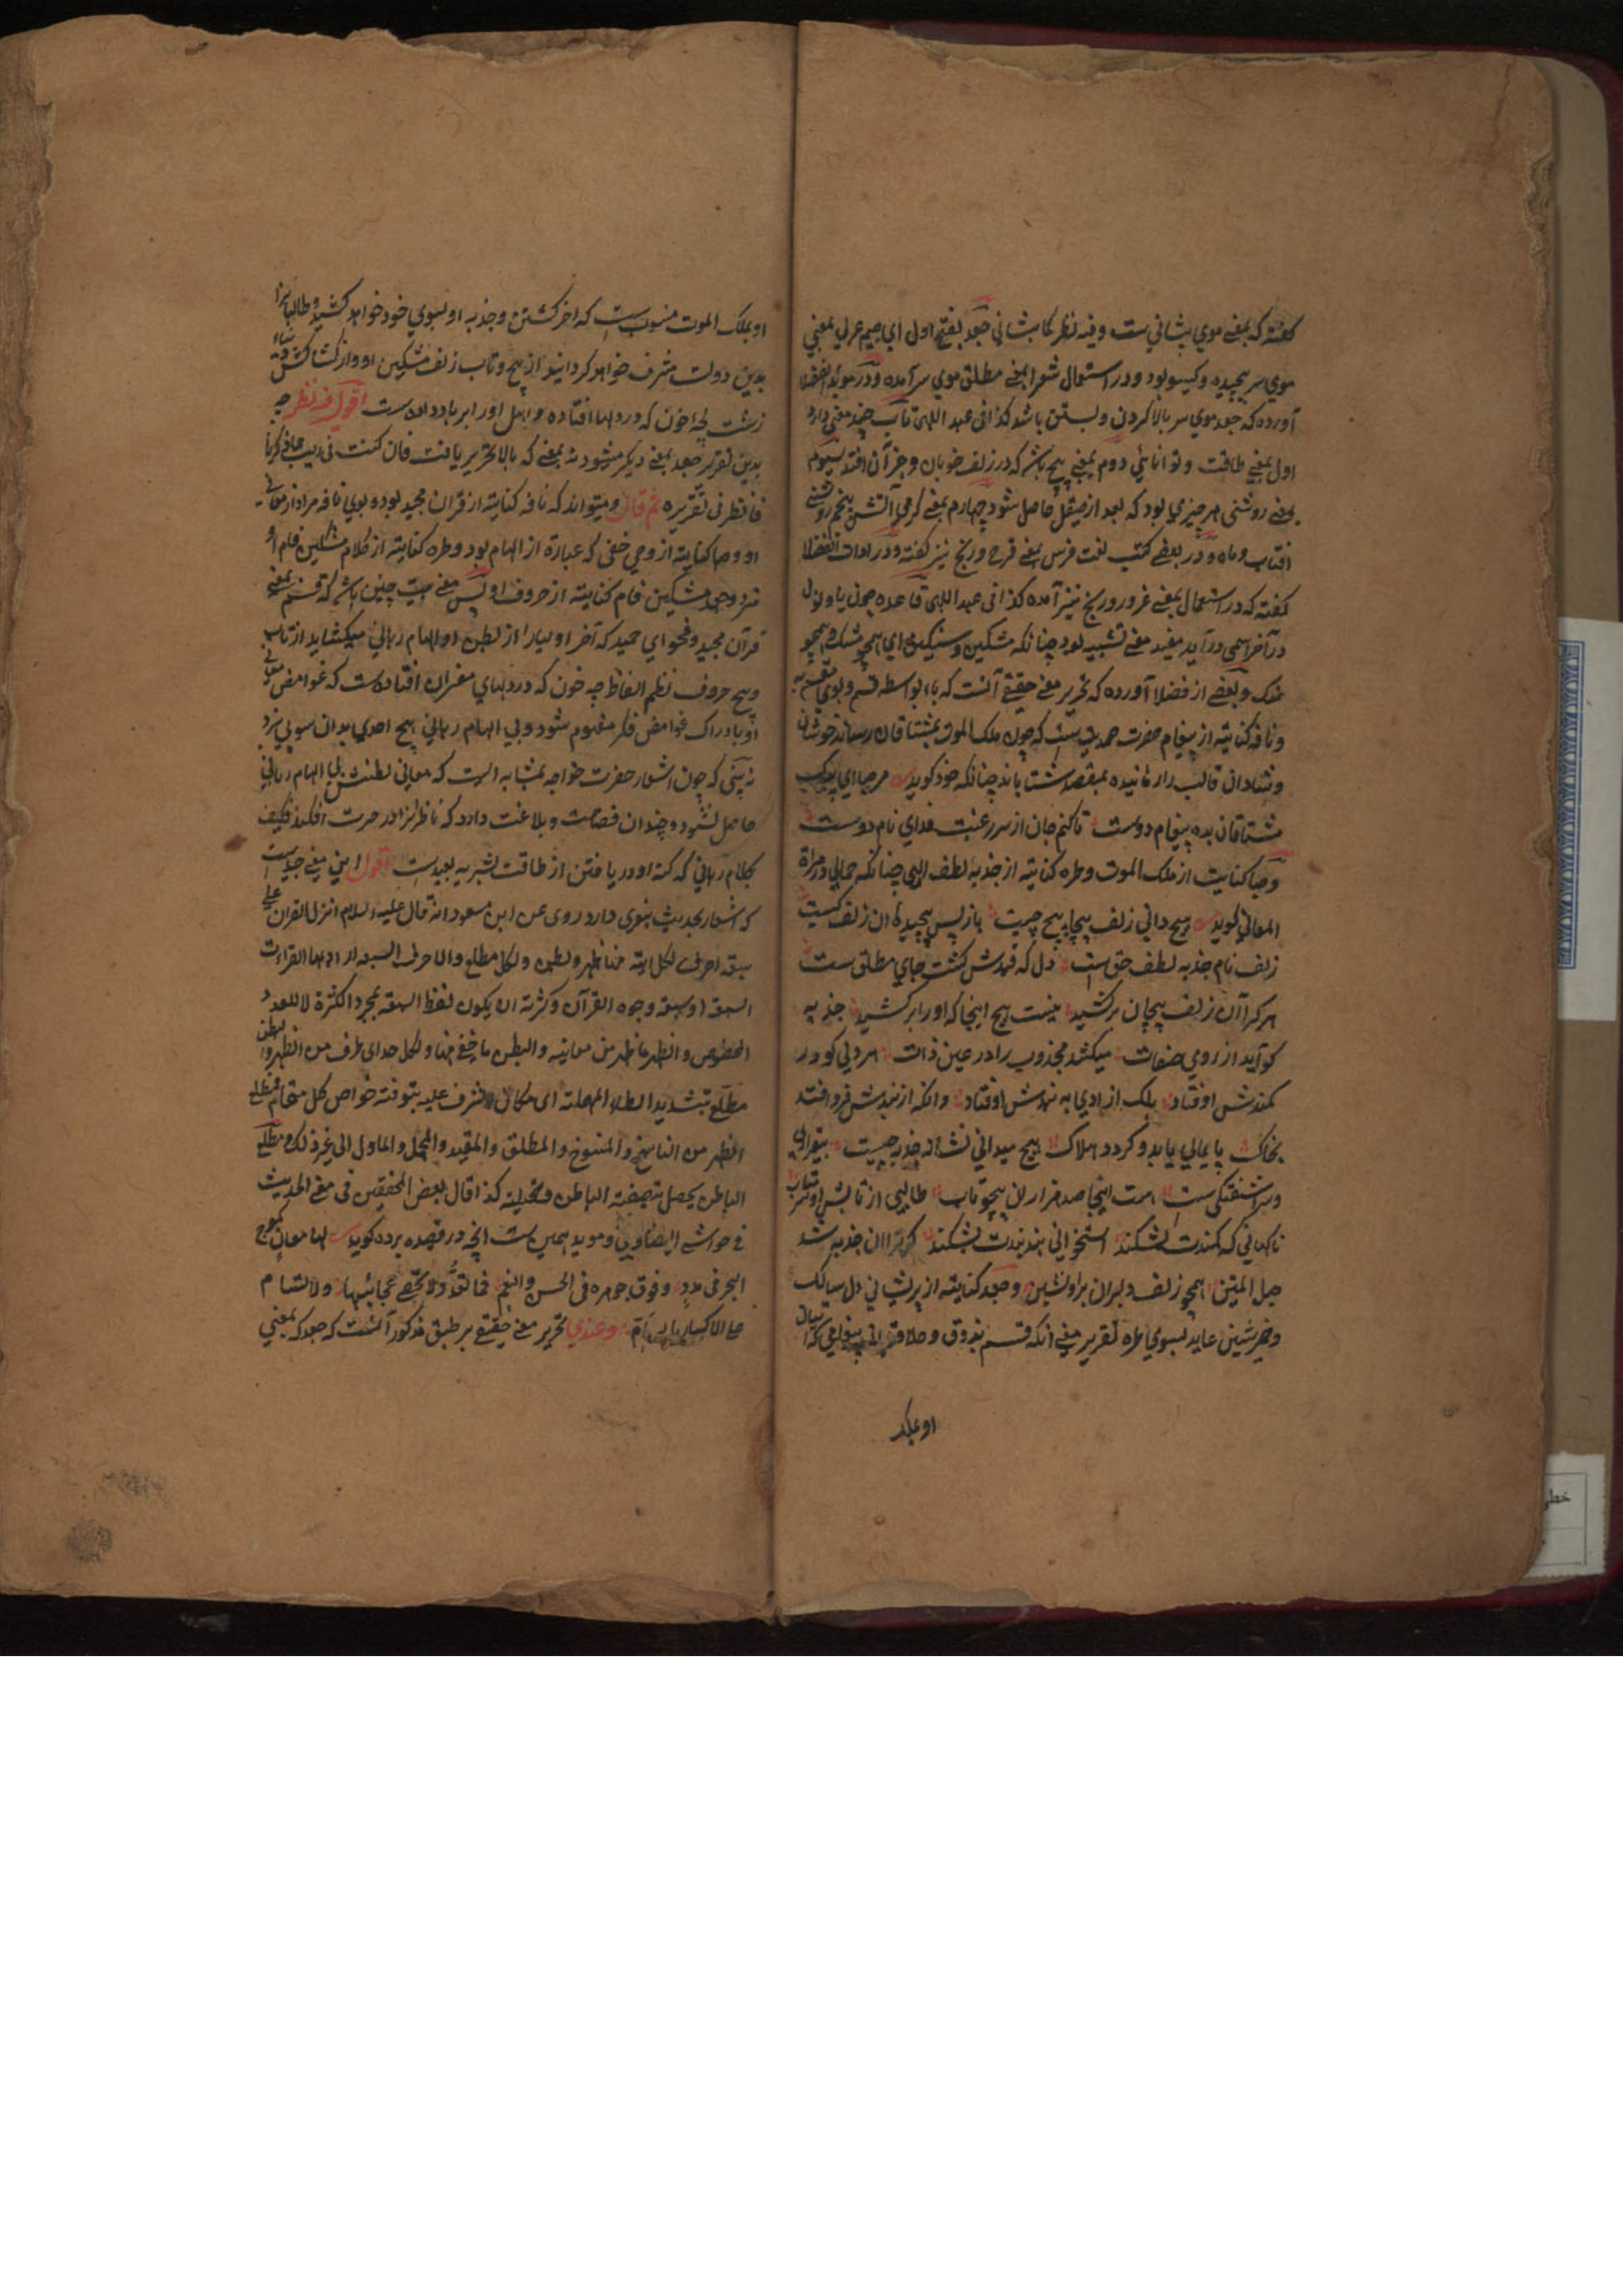 گفته که بمعنی موی پیشانی ست و فیه نظر کما بینا فی جعد بفتح اول ای جیم عربی بمعنی
موی سر پیچیده و گیسو بود و در استعمال شعرا بمعنی مطلق موی سر آمده و در موید الفضلا
آورده که جعد موی سر بالا کردن و بستن باشد کذا فی عبد اللهی تاب چند معنی دارد
اول بمعنی طاقت و توانائی دوم بمعنی پیچ باشد که در زلف خوبان و جز آن افتد سیوم
بمعنی روشنی هر چیزی بود که بعد از صیقل حاصل شود چهارم بمعنی گرمی آتش پنجم روشنی
افتاب و ماه و در بعضی کتب لغت فرس بمعنی قرح و رنج نیز گفته و در ادات الفضلا
گفته که در استعمال بمعنی غرور و رنج نیز آمده کذا فی عبد اللهی قاعده چون یا و نون
در آخر اسمی در آید مفید معنی تشبیه بود چنانکه مشکین و سنگین ای همچو مشک و همچو
سنک و بعضی از فضلا آورده که تحریر معنی حقیقی آنست که باء بواسطه قسم و بوی مقسم به
و نافه کنایته از پیغام حضرت صمدیت ست که چون ملک الموت بمشتاقان رساند خوشان
و شادان قالب را رمانیده بمقصد شتابانند چنانکه خود کوید مرحبا ای پیک
مشتاقان بده پیغام دوست تا کنم جان از سر رغبت فدای نام دوست
و صبا کنایت از ملک الموت و طره کنایته از جذبه لطف الهی چنانکه جمالی در مرآة
المعانی کوید هیچ دانی زلف پیچاپیچ چیست باز پس پیچیده کان زلف کیست
زلف نام جذبه لطف حق است دل که قیدش کشت جای مطلق ست
هر کرا آن زلف پیچان بر کشید نیست هیچ اینجا که او را بر کشید جذبه
کو آید از روی صفات میکشد مجذوب را در عین ذات هر دلی کو در
کمندش اوفتاد بلک از ادی به بندش اوفتاد وانکه از بندش فرو افتد
بخاک پایمالی یابد و کردد هلاک هیچ میدانی نشان جذبه چیست بیقراری
و سر اشفتگی ست هست اینجا صد هزاران پیچ و تاب طالبی از تابش او سر متاب
ناکهانی که کمندت بشکند استخوانی بند بندت بشکند کر ترا ان جذبه شد
حبل المتین همچو زلف دلبران براو نشین و جعد کنایته از پریشانی دل سالک
و ضمیر شین عاید بسوی طره تقریر معنی انکه قسم بذوق و حلاوت ان پیغامی که ارسال
او بملک
او بملک الموت منسوب ست که اخر کشتن و جذبه او بسوی خود خواهد کشید و طالبانرا
بدین دولت مشرف خواهد کردانید از پیچ و تاب زلف مشکین او و از کشاکش
زشت لجۀ خون که در دلها افتاده و اهل او را بر باد داده ست اقول فیه نظر چه
بدین تقریر جعد بمعنی دیکر میشود نه بمعنی که بالا تحریر یافت فان کنت فی ریب مما ذکرنا
فانظر فی تقریره ثم قال و میتواند که نافه کنایته از قران مجید بود و بوی نافه مراد از معانی
او و صبا کنایته از وحی خفی که عبارة از الهام بود و طره کنایته از کلام
و جعد مشکین فام کنایته از حروف او پس معنی بیت چنین باشد که قسم بمعنی
قرآن مجید و فحوای حمید که آخر اولیا را از بطن او الهام ربانی میکشاید از تاب
و پیچ حروف نظم الفاظ چه خون که در دلهای مفسران افتاده ست که غوامض معانی
او بادراک غوامض فکر مفهوم شود و بی الهام ربانی هیچ احدی بدان سو پی نبرد
نه بینی که چون اشعار حضرت خواجه بمثابه است که معانی بطنش بی الهام ربانی
حاصل نشود و چندان فصاحت و بلاغت دارد که ناظرانرا در حیرت افکند فکیف
بکلام ربانی که کنه او دریافتن از طاقت بشریه بعید ست اقول این معنی جید است
که اشعار بحدیث نبوی دارد روی عن ابن مسعود انه قال علیه السلام انزل القران علی
سبعة احرف لکل ایة منها ظهر و بطن و لکل مطلع و الاحرف السبعة اراد بها القراءت
السبعة او سبعة وجوه القرآن و کثرته ان یکون لفظ السبعة لمجرد الکثرة لا للعدد
المخصوص و الظهر ما ظهر من معانیه و البطن ما خفی منها و لکل حد ای طرف من الظهر و البطن
مطلع بتشدید الطاء المهملة ای مکان یشرف علیه بتوفته خواص کل مقام فمطلع
الظهر من الناسخ و المنسوخ و المطلق و المقید و المجمل و الماول الی غیر ذلک و مطلع
الباطن یحصل بتصفیة الباطن و تحلیته کذا قال بعض المحققین فی معنی الحدیث
فی حواشی البیضاوی و موید همین ست انچه در قصیده برده کوید لها معان کموج
البحر فی مدد و فوق جوهره فی الحسن و القیم فما تعد و لا تحصی عجائبها و لا تسام
علی الاکثار بالسام و عندی تحریر معنی حقیقی بر طبق مذکور آنست که جعد که بمعنی
خطی